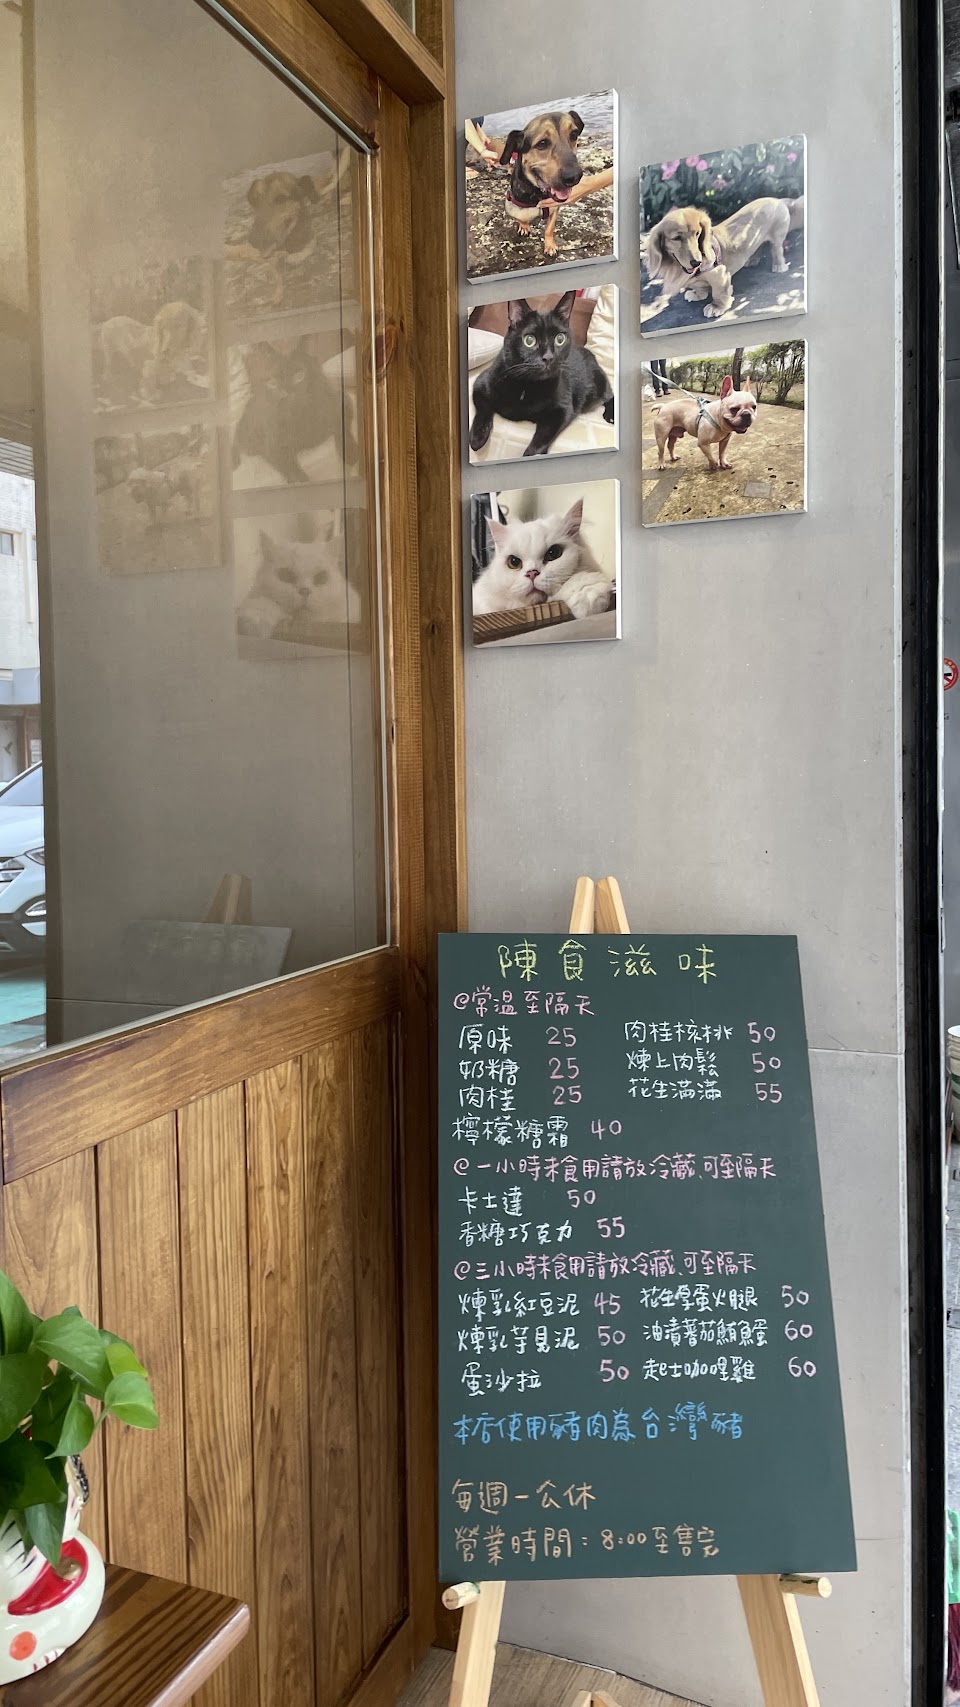 陳食滋味
@常溫至隔天
原味 25 肉桂核桃 50
奶糖 25 煉上肉鬆 50
肉桂 25 花生滿滿 55
檸檬糖霜 40
@一小時未食用請放冷藏、可至隔天
卡士達 50
香糖巧克力 55
@三小時未食用請放冷藏、可至隔天
煉乳紅豆泥 45 花生厚蛋火腿 50
煉乳芋見泥 50 油漬蕃茄鮪魚蛋 60
蛋沙拉 50 起士咖哩雞 60
本店使用豬肉為台灣豬
每週一公休
營業時間：8:00至售完